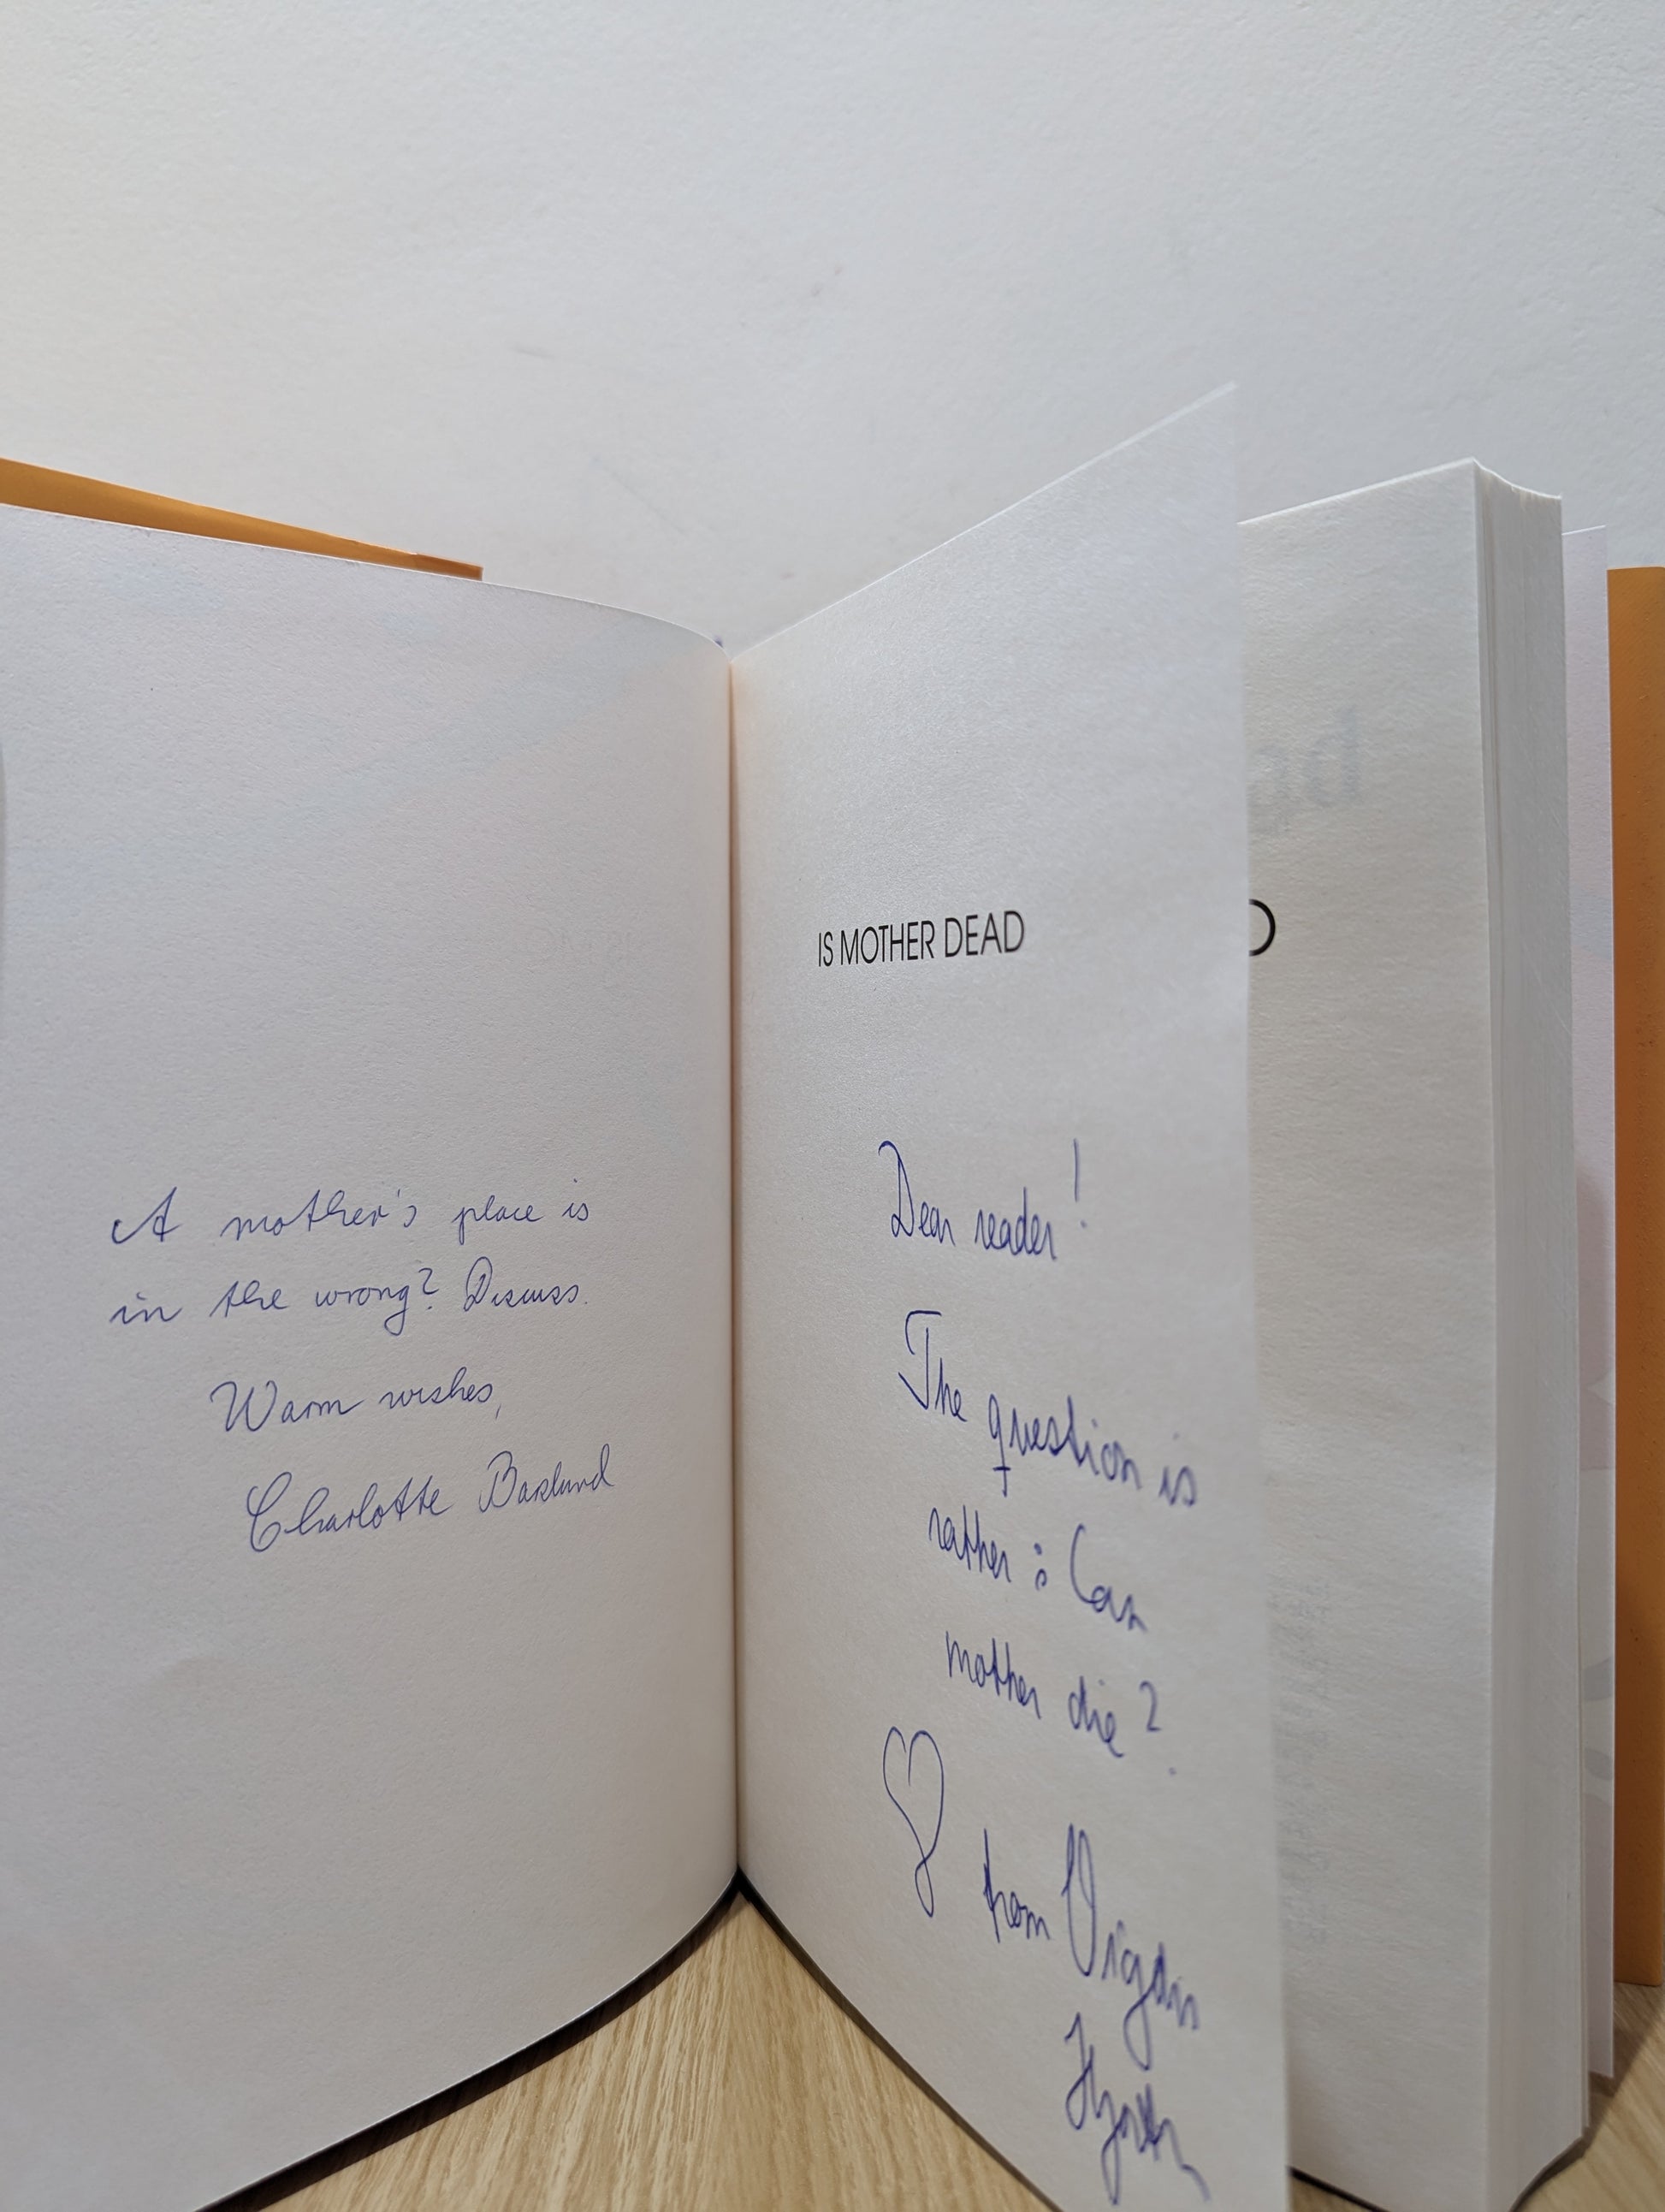 A mother's place is
in the wrong? Discuss.
Warm wishes,
Charlotte Barslund
IS MOTHER DEAD
Dear reader!
The question is
rather: Can
mother die?
from Vigdis
Hjorth
D